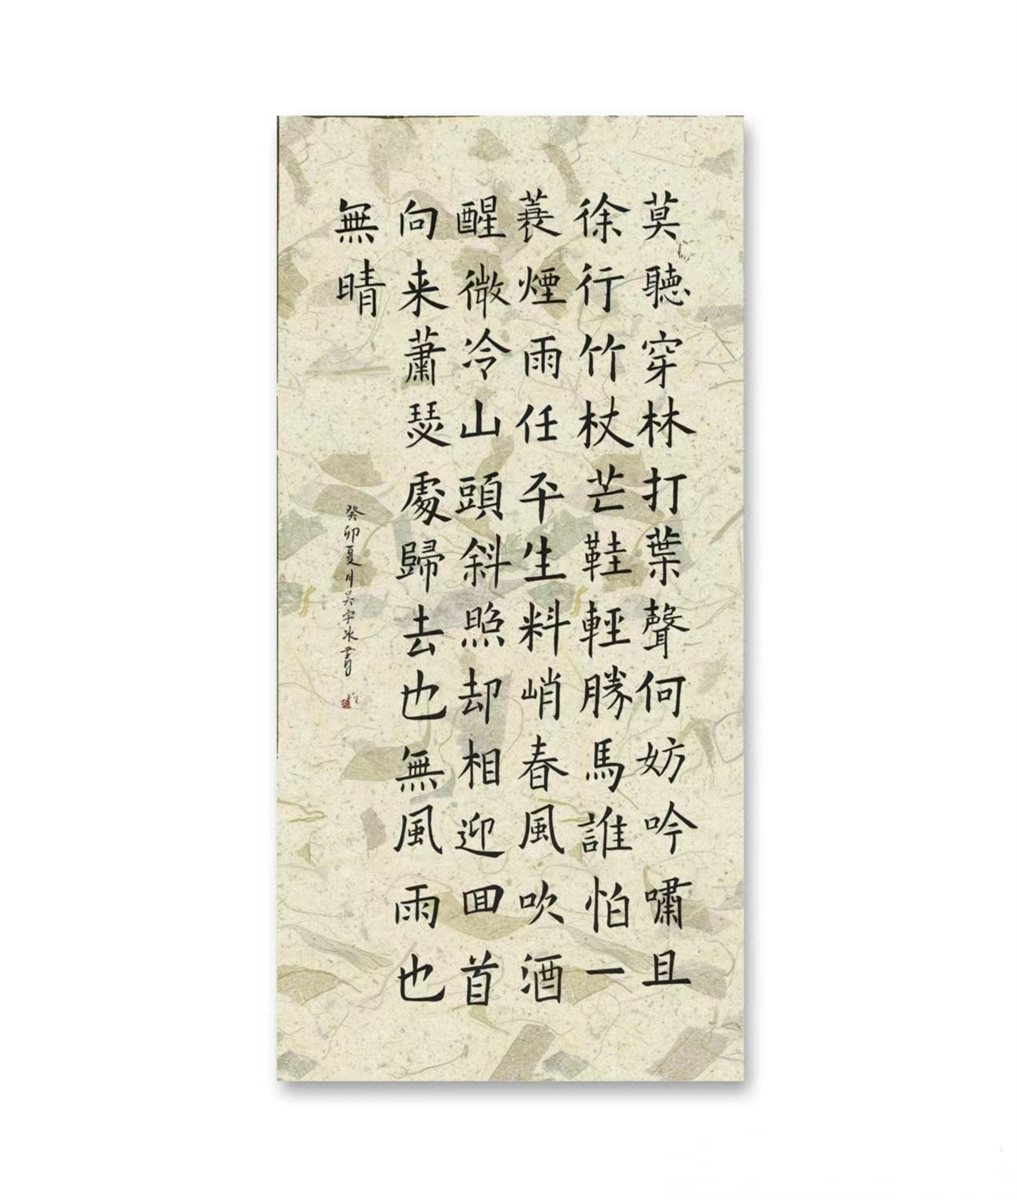 莫聽穿林打葉聲何妨吟嘯且
徐行竹杖芒鞋輕勝馬誰怕一
蓑煙雨任平生料峭春風吹酒
醒微冷山頭斜照却相迎回首
向来蕭瑟處歸去也無風雨也
無晴
癸卯夏月吳宇冰書